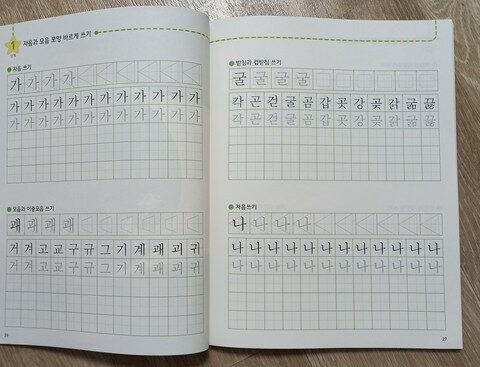 1
단계
자음과 모음 모양 바르게 쓰기
자음 쓰기
가 가 가 가
가 가 가 가 가 가 가 가 가 가 가 가
가 가 가 가 가 가 가 가 가 가 가 가
모음과 이중모음 쓰기
괘 괘 괘 괘
겨 겨 고 교 구 규 그 기 계 괘 괴 귀
겨 겨 고 교 구 규 그 기 계 괘 괴 귀
받침과 겹받침 쓰기
굴 굴 굴 굴
각 곤 걷 굴 곰 갑 곳 강 곶 갉 굶 끓
각 곤 걷 굴 곰 갑 곳 강 곶 갉 굶 끓
자음쓰기
나 나 나 나
나 나 나 나 나 나 나 나 나 나 나 나
나 나 나 나 나 나 나 나 나 나 나 나
27